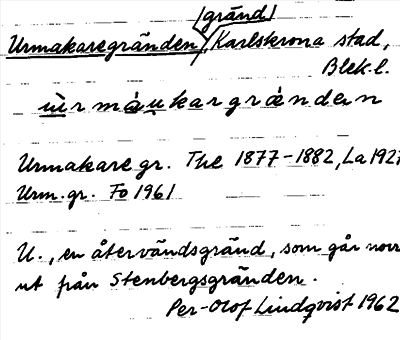 /gränd/
Urmakaregränden, Karlskrona stad,
Blek.l.
ùr màkargrǝndǝn
Urmakare gr. The 1877-1882, La 1927
Urm.gr. Fo 1961
U., en återvändsgränd, som går norr
ut från Stenbergsgränden.
Per-Olof Lindqvist 1962